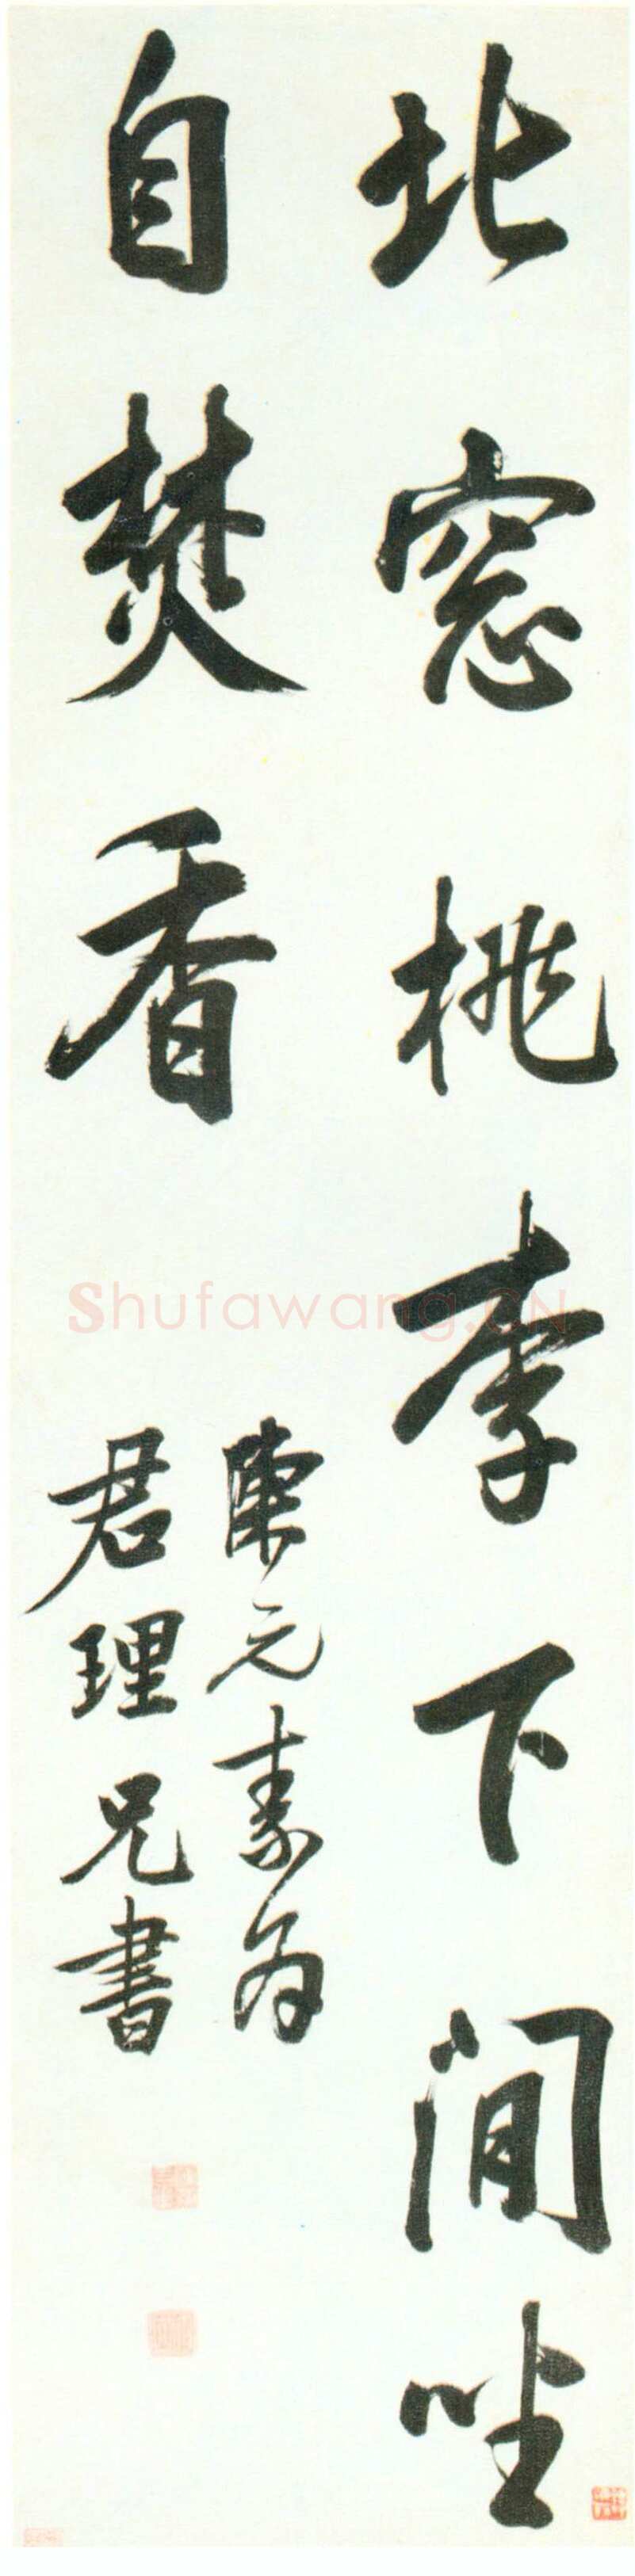 北窓桃李下閒坐
自焚香
陳元素為
君理兄書
Shufawang.CN